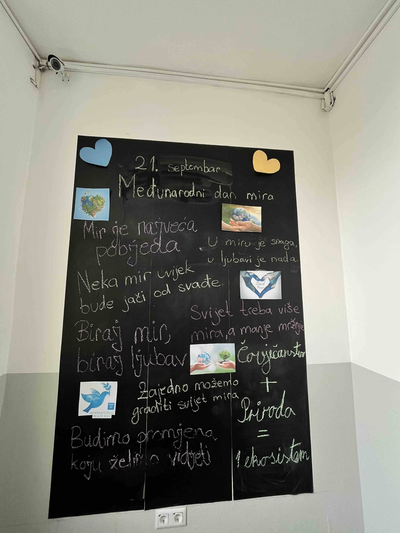 21. septembar
Međunarodni dan mira
Mir je najveća
pobjeda
U miru je snaga,
u ljubavi je nada.
Neka mir uvijek
bude jači od svađe
Svijet treba više
mira, a manje mržnje
Biraj mir,
biraj ljubav
Čovječanstvo
+
Priroda
=
1 ekosistem
Zajedno možemo
graditi svijet mira
Budimo promjena
koju želimo vidjeti